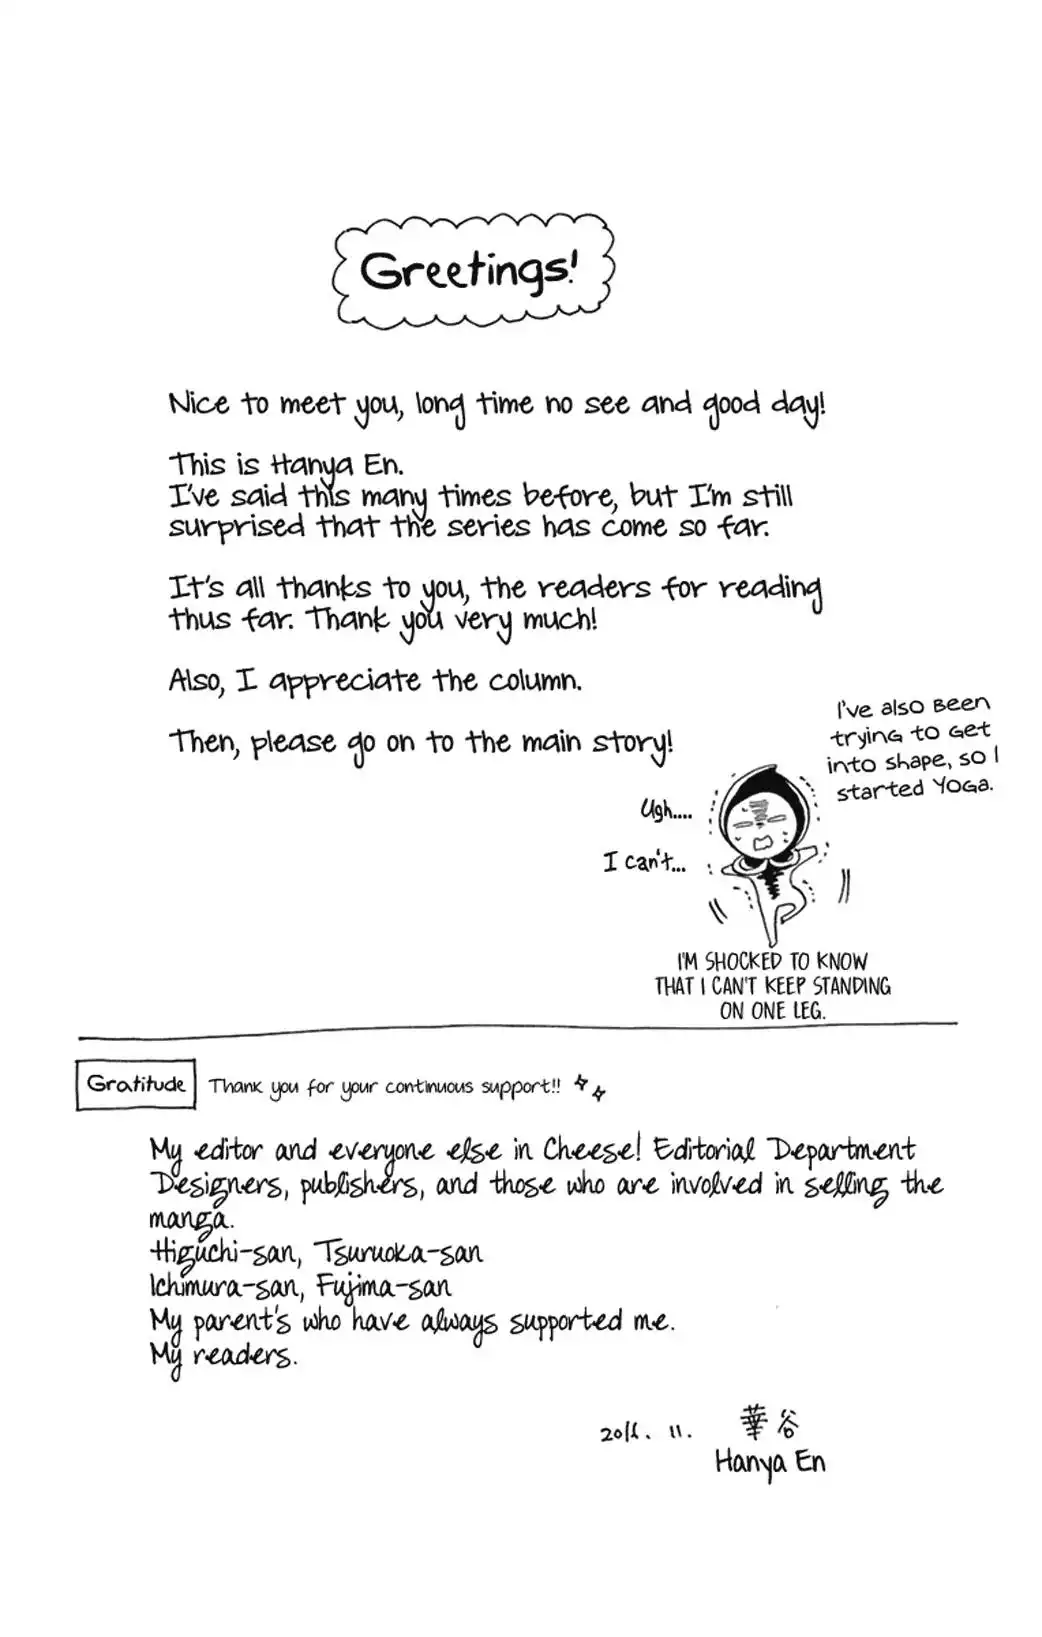 Greetings!
Nice to meet you, long time no see and good day!
This is Hanya En.
I've said this many times before, but I'm still
surprised that the series has come so far.
It's all thanks to you, the readers for reading
thus far. Thank you very much!
Also, I appreciate the column.
Then, please go on to the main story!
I've also been
trying to get
into shape, so I
started yoga.
Ugh....
I can't...
I'M SHOCKED TO KNOW
THAT I CAN'T KEEP STANDING
ON ONE LEG.
Gratitude
Thank you for your continuous support!!
My editor and everyone else in Cheese! Editorial Department
Designers, publishers, and those who are involved in selling the
manga.
Higuchi-san, Tsuruoka-san
Ichimura-san, Fujima-san
My parent's who have always supported me.
My readers.
11.
華谷
Hanya En